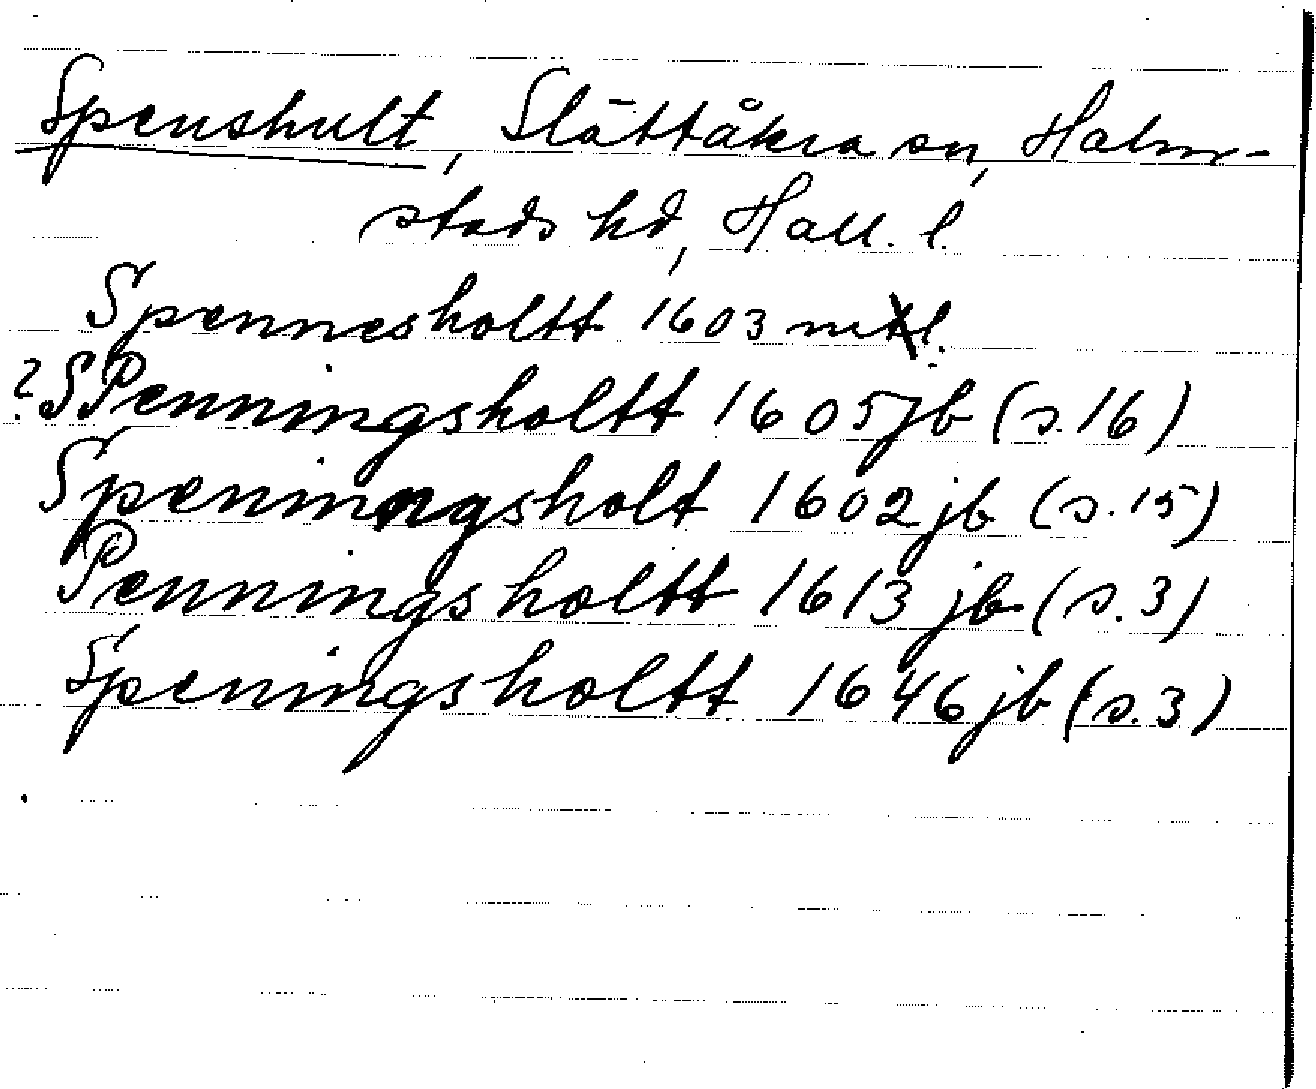 Spenshult, Slättåkra sn, Halm-
stads hd, Hall. l.
Spennesholtt 1603 mtl.
? SPenningsholtt 1605 jb (s. 16)
Speningsholt 1602 jb (s. 15)
Penningsholtt 1613 jb (s. 3)
Speningsholtt 1646 jb (s. 3)